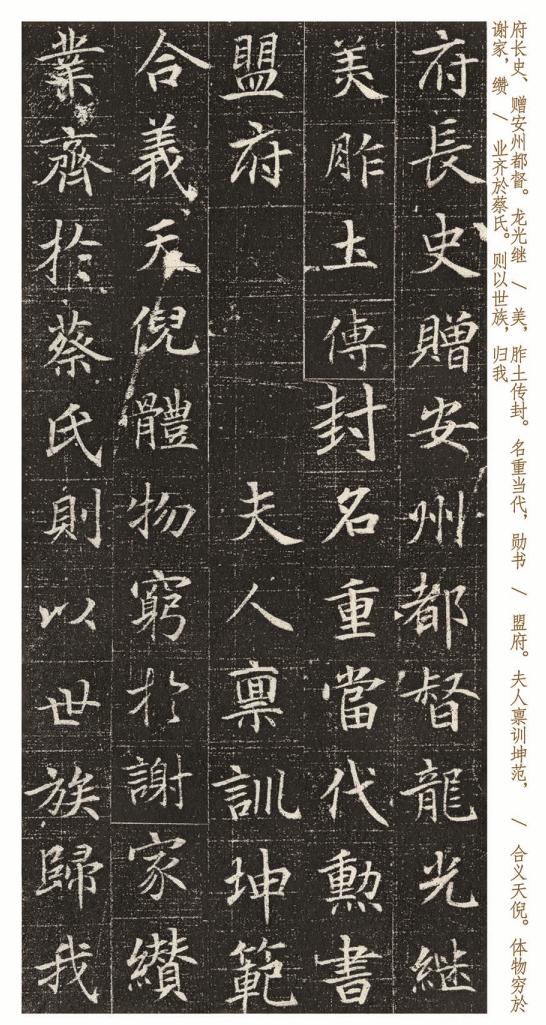 府長史贈安州都督龍光継
美胙土傳封名重當代勲書
盟府夫人禀訓坤範
合義天倪體物窮於謝家纘
業齊於蔡氏則以世族歸我
府长史、赠安州都督。龙光继 / 美，胙土传封。名重当代，勋书 / 盟府。夫人禀训坤范， / 合义天倪。体物穷於
谢家，缵 / 业齐於蔡氏。则以世族，归我